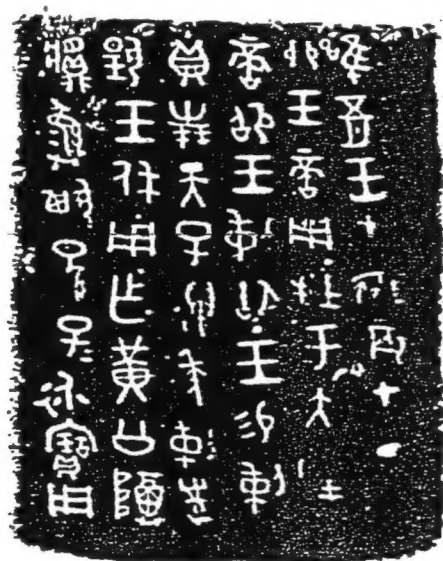 唯五月王才衣辰才丁
卯王啻用牡于大室
啻卲王剌御王易剌
貝卅朋天子萬年剌對
揚王休用乍黃公尊
䵼彝其孫孫子子永寶用